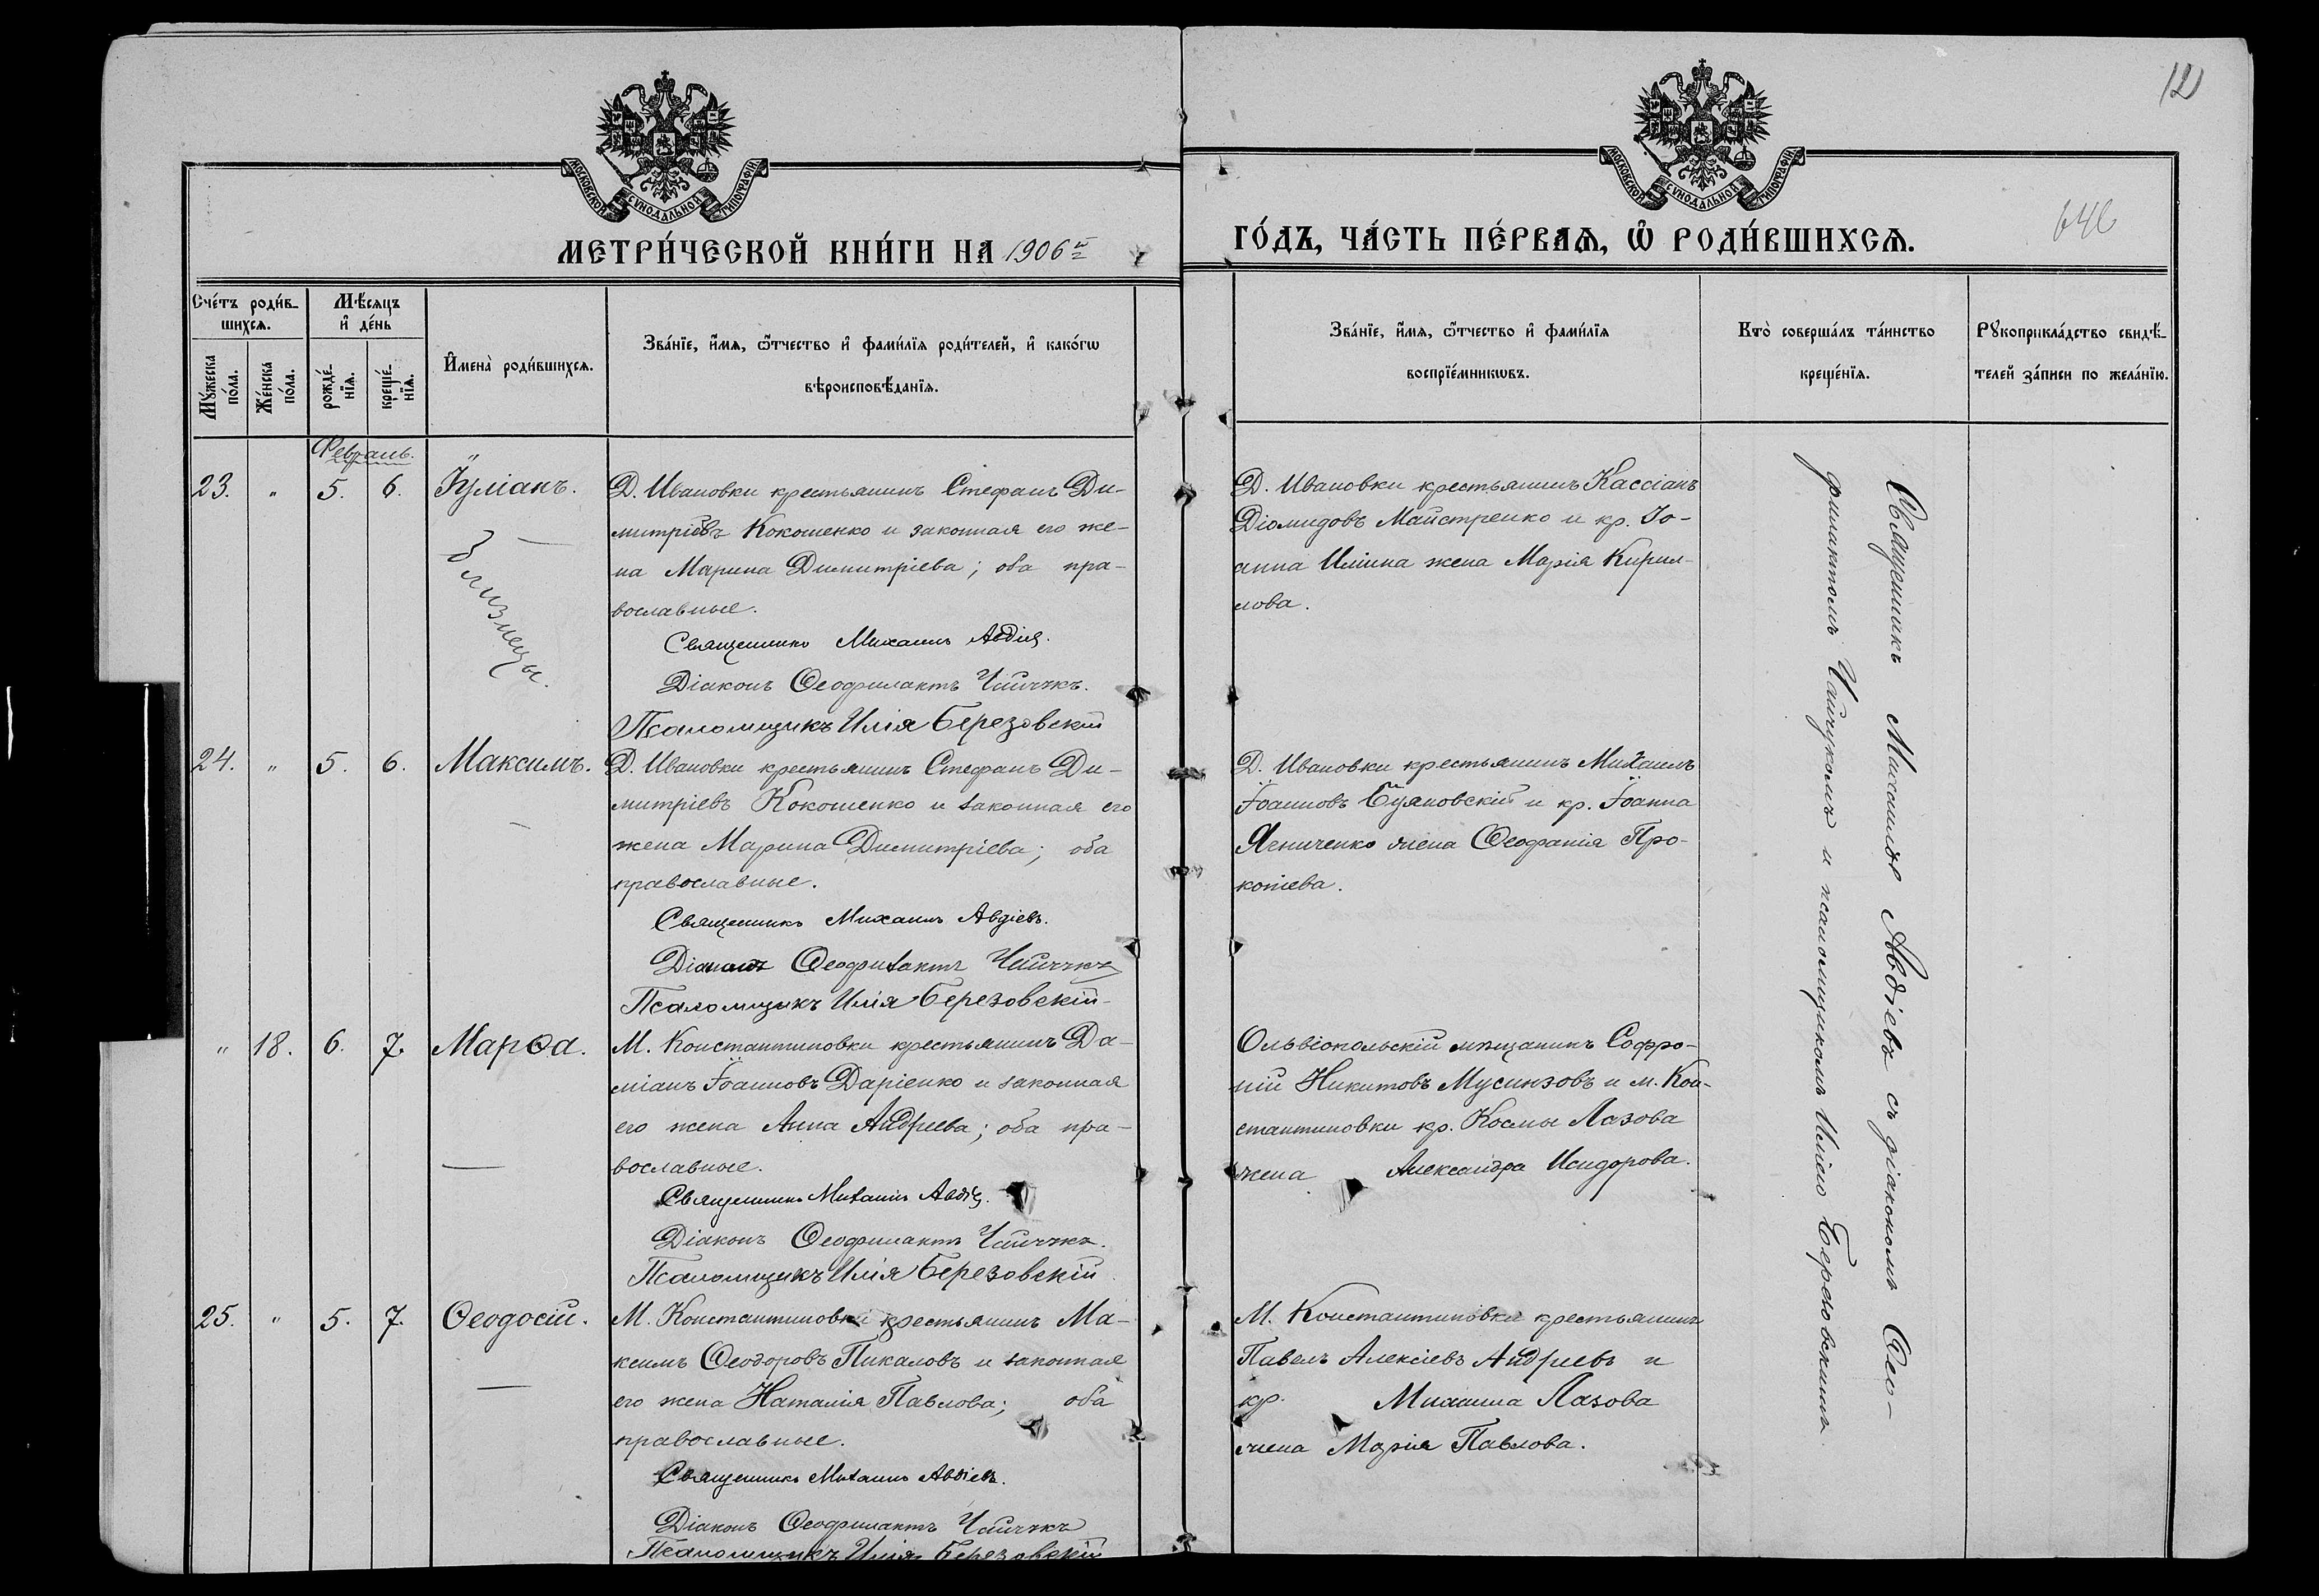 12
МОСКОВСКОЙ СѴНОДАЛЬНОЙ ТИПОГРАФІИ
МОСКОВСКОЙ СѴНОДАЛЬНОЙ ТИПОГРАФІИ
МЕТРИ́ЧЕСКОЙ КНИ́ГИ НА 1906й
ГО́ДЪ, ЧА́СТЬ ПЕ́РВАѦ, Ѡ҆ РОДИ́ВШИХСѦ.
646
Сче́тъ роди́в-
шихсѧ.
Мѣ́сѧцъ
и҆ де́нь
Мꙋ́жеска
по́ла.
Же́нска
по́ла.
рожде́-
нїѧ.
креще́-
нїѧ.
И҆мена̀ роди́вшихсѧ.
Зва́нїе, и҆́мѧ, ѻ҆́тчество и҆ фами́лїѧ роди́телей, и҆ како́гѡ
вѣроисповѣ́данїѧ.
Зва́нїе, и҆́мѧ, ѻ҆́тчество и҆ фами́лїѧ
воспрїе́мникѡвъ.
Кто̀ соверша́лъ та́инство
креще́нїѧ.
Рꙋкоприкла́дство свидѣ́-
телей за́писи по жела́нїю.
Февраль.
23. " 5. 6. Іуліанъ.
Д. Ивановки крестьянинъ Стефанъ Ди-
митріевъ Кокошенко и законная его же-
на Марина Димитріева; оба пра-
вославные.
Священникъ Михаилъ Авдіевъ.
Діаконъ Ѳеофилактъ Чайчукъ.
Псаломщикъ Илія Березовскій
Близнецы.
Д. Ивановки крестьянинъ Кассіанъ
Діомидовъ Майстренко и кр. Іо-
анна Иліина жена Марія Кирил-
лова.
24. " 5. 6. Максимъ.
Д. Ивановки крестьянинъ Стефанъ Ди-
митріевъ Кокошенко и законная его
жена Марина Димитріева; оба
православные.
Священникъ Михаилъ Авдіевъ.
Діаконъ Ѳеофилактъ Чайчукъ
Псаломщикъ Илія Березовскій
Д. Ивановки крестьянинъ Михаилъ
Іоанновъ и кр. Іоанна
Ягниченко жена Ѳеофанія Про-
копіева.
" 18. 6. 7. Марѳа.
М. Константиновки крестьянинъ Да-
міанъ Іоанновъ Даріенко и законная
его жена Анна Андреева; оба пра-
вославные.
Священникъ Михаилъ Авдіевъ.
Діаконъ Ѳеофилактъ Чайчукъ.
Псаломщикъ Илія Березовскій
Ольвіопольскій мѣщанинъ Софро-
ній Никитовъ Мусинзовъ и м. Кон-
стантиновки кр. Космы Лазова
жена Александра Исидорова.
25. " 5. 7. Ѳеодосій.
М. Константиновки крестьянинъ Ма-
ксимъ Ѳеодоровъ Пикаловъ и законная
его жена Наталія Павлова; оба
православные.
Священникъ Михаилъ Авдіевъ.
Діаконъ Ѳеофилактъ Чайчукъ
Псаломщикъ Илія Березовскій
М. Константиновки крестьянинъ
Павелъ Алексіевъ Андреевъ и
кр. Михаила Лазова
жена Марія Павлова.
Священникъ Михаилъ Авдіевъ съ діакономъ Ѳео-
филактомъ Чайчукомъ и псаломщикомъ Иліею Березовскимъ